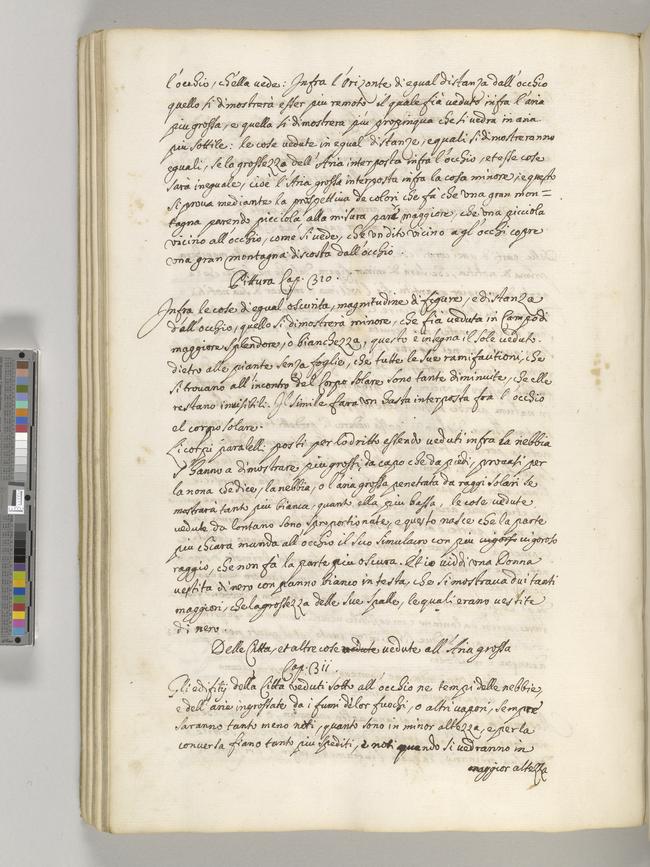 l'occhio, ch'ella vede: Infra l'Orizonte di equal distanza dall'occhio
quello si dimostrerà esser piu remoto il quale fia veduto infra l'aria
piu grossa, e quella si dimostrera piu propinqua che si vedra in aria
piu sottile: le cose vedute in equal distanze, equali si dimostreranno
equali, se la grossezza dell'Aria interposta infra l'occhio, et esse cose
sarà ineguale, cioè l'Aria grossa interposta infra la cosa minore; e questo
si prova mediante la prospettiva de colori che fa che una gran mon=
tagna parendo picciola alla misura parà maggiore, che una picciola
vicino all'occhio, come si vede, che un dito vicino a gl'occhi copre
una gran montagna discosta dall'occhio.
Pittura Cap. 310.
Infra le cose di equal oscurità, magnitudine di figure, e distanza
dall'occhio, quello si dimostrerà minore, che fia veduta in Campo di
maggiore splendore, o bianchezza, questo e insegna il Sole veduto
dietro alle piante senza foglie, che tutte le sue ramificationi, che
si trovano all'incontro del Corpo solare sono tante diminuite, che elle
restano invisibili. Il simile farà un hasta interposta fra l'occhio
el corpo solare.
Li corpi paralelli posti per lo dritto essendo veduti infra la nebbia
s'hanno a dimostrare piu grossi da capo che da piedi, provasi per
la nona che dice, la nebbia, o l'aria grossa penetrata da raggi solari se
mostrarà tanto piu bianca, quant'ella piu bassa, le cose vedute
vedute da lontano sono sproportionate, e questo nasce che la parte
piu chiara manda all'occhio il suo simulacro con piu vigoroso
raggio, che non fa la parte piu oscura. Et io viddi una Donna
vestita di nero con panno bianco in testa, che si mostrava dui tanti
maggiori, che la grossezza delle sue spalle, le quali erano vestite
di nero.
Delle Citta, et altre cose vedute vedute all'Aria grossa
Cap. 311.
Gli edifitij della Citta veduti sotto all'occhio ne tempi delle nebbie,
e dell'arie ingrossate da i fumi de lor fuochi, o altri vapori, sempre
saranno tanto meno noti, quanto sono in minor altezza, e per la
conversa fiano tanto piu spediti, e noti quando si vedranno in
maggior altezza